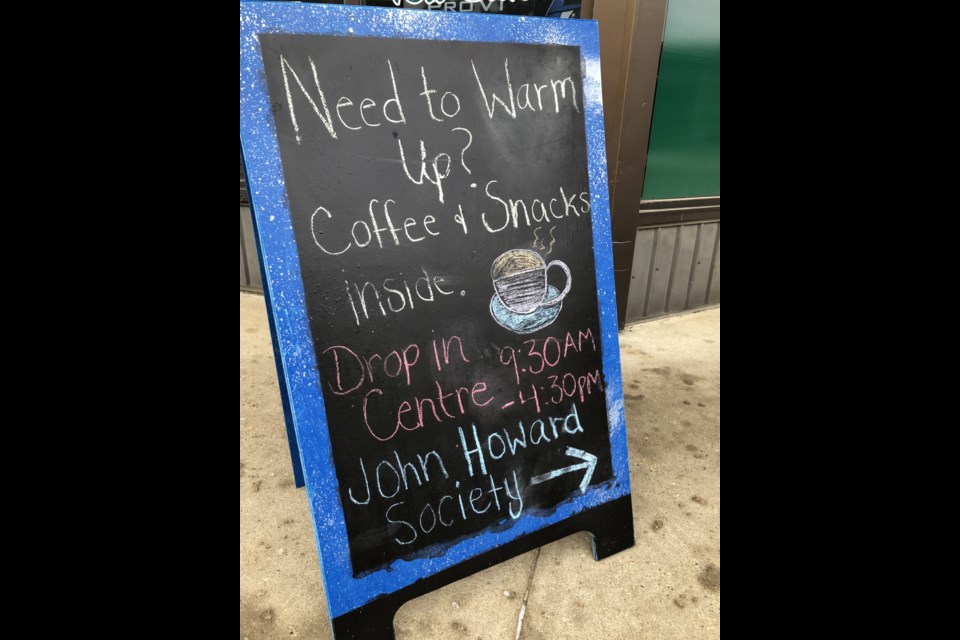 PROVI
Need to Warm
Up?
Coffee & Snacks
inside.
Drop in 9:30AM
Centre -4:30PM
John Howard
Society →